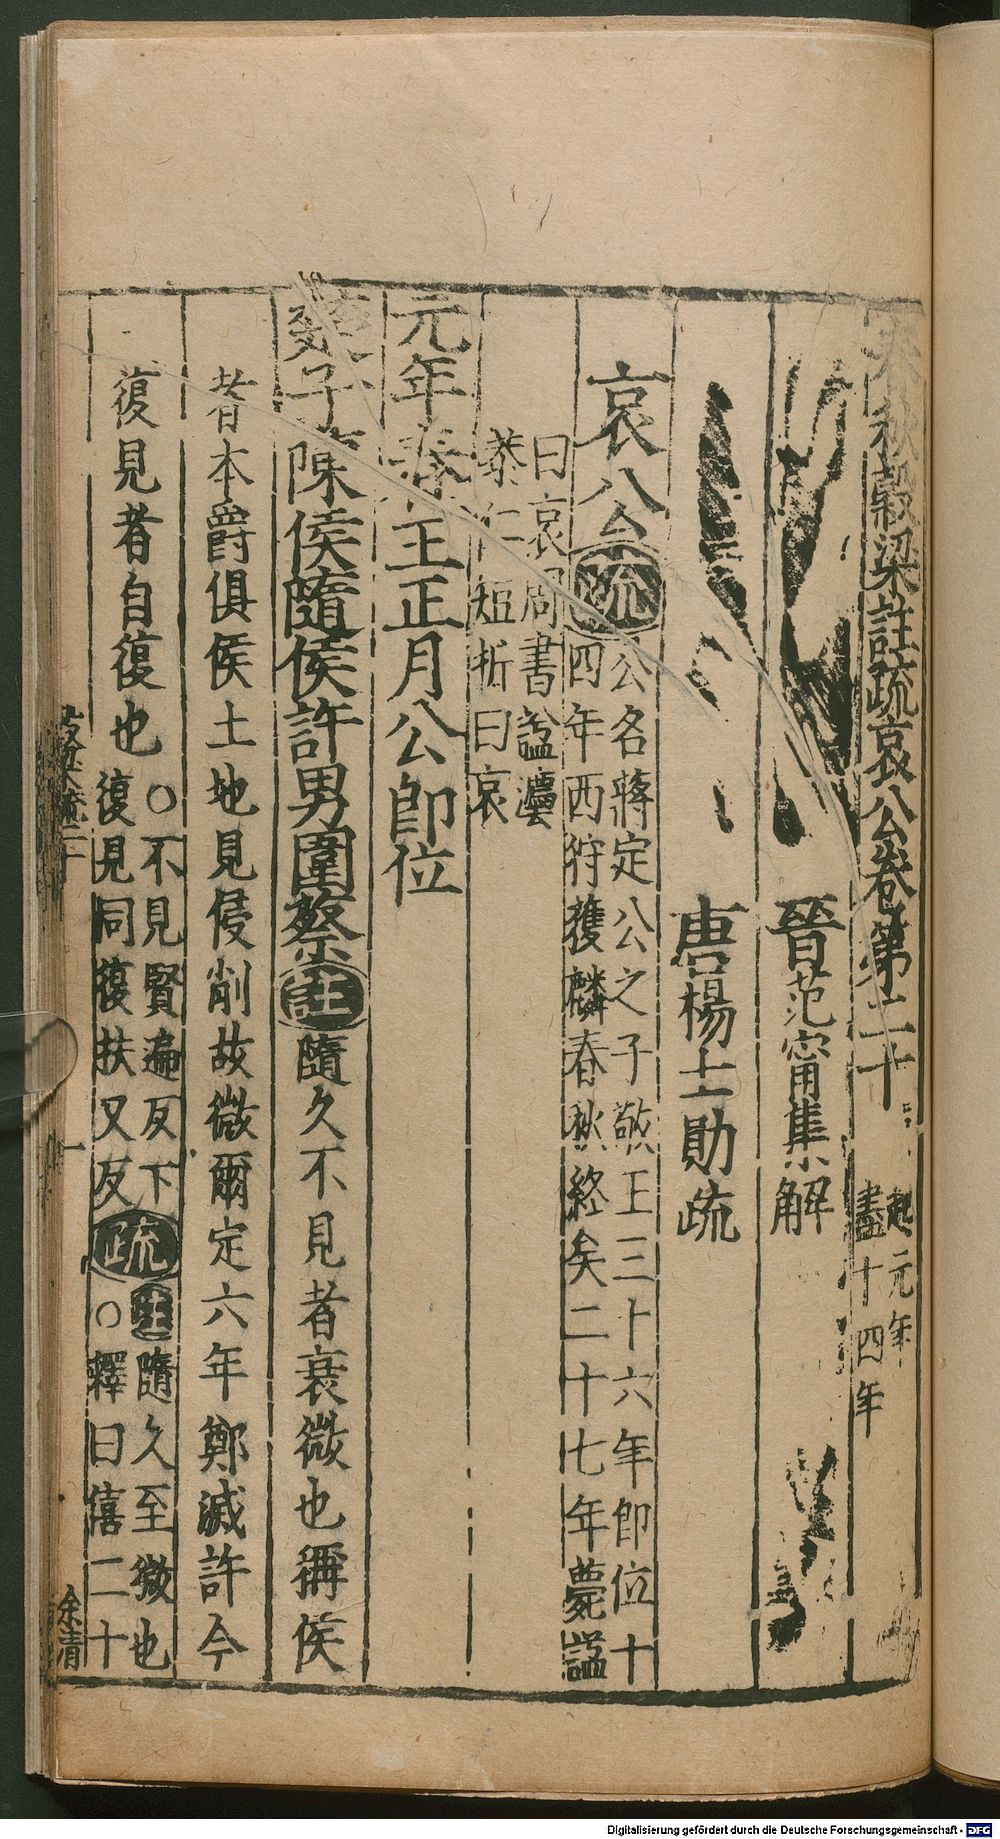 春秋穀梁註疏哀公卷第二十 起元年
盡十四年
晉范甯集解
唐楊士勛疏
哀公 疏 公名蔣定公之子敬王二十六年即位十
四年西狩獲麟春秋終矣二十七年薨謚
曰哀周書謚灋
恭仁短折曰哀
元年春王正月公即位
楚子陳侯隨侯許男圍蔡 註 隨久不見者衰微也稱侯
者本爵俱侯土地見侵削故微爾定六年鄭滅許今
復見者自復也 ○不見賢遍反下
復見同復扶又反 疏 註隨久至微也
○釋曰僖二十
一
余清
Digitalisierung gefördert durch die Deutsche Forschungsgemeinschaft - DFG